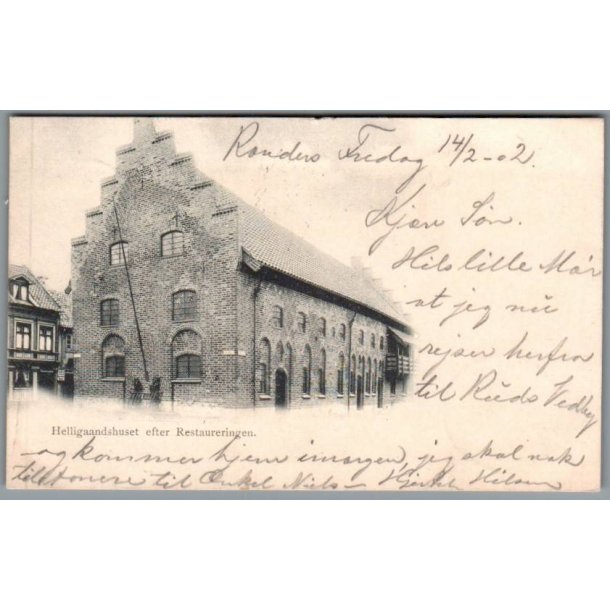 Randers Fredag 14/2-02.
Kjære Søn.
Hils lille Mor
at jeg nu
rejser herfra
til Ruds Vedby
Helligaandshuset efter Restaureringen.
og kommer hjem imorgen, jeg skal nok
telefonere til Onkel Niels – Hjertel Hilsen